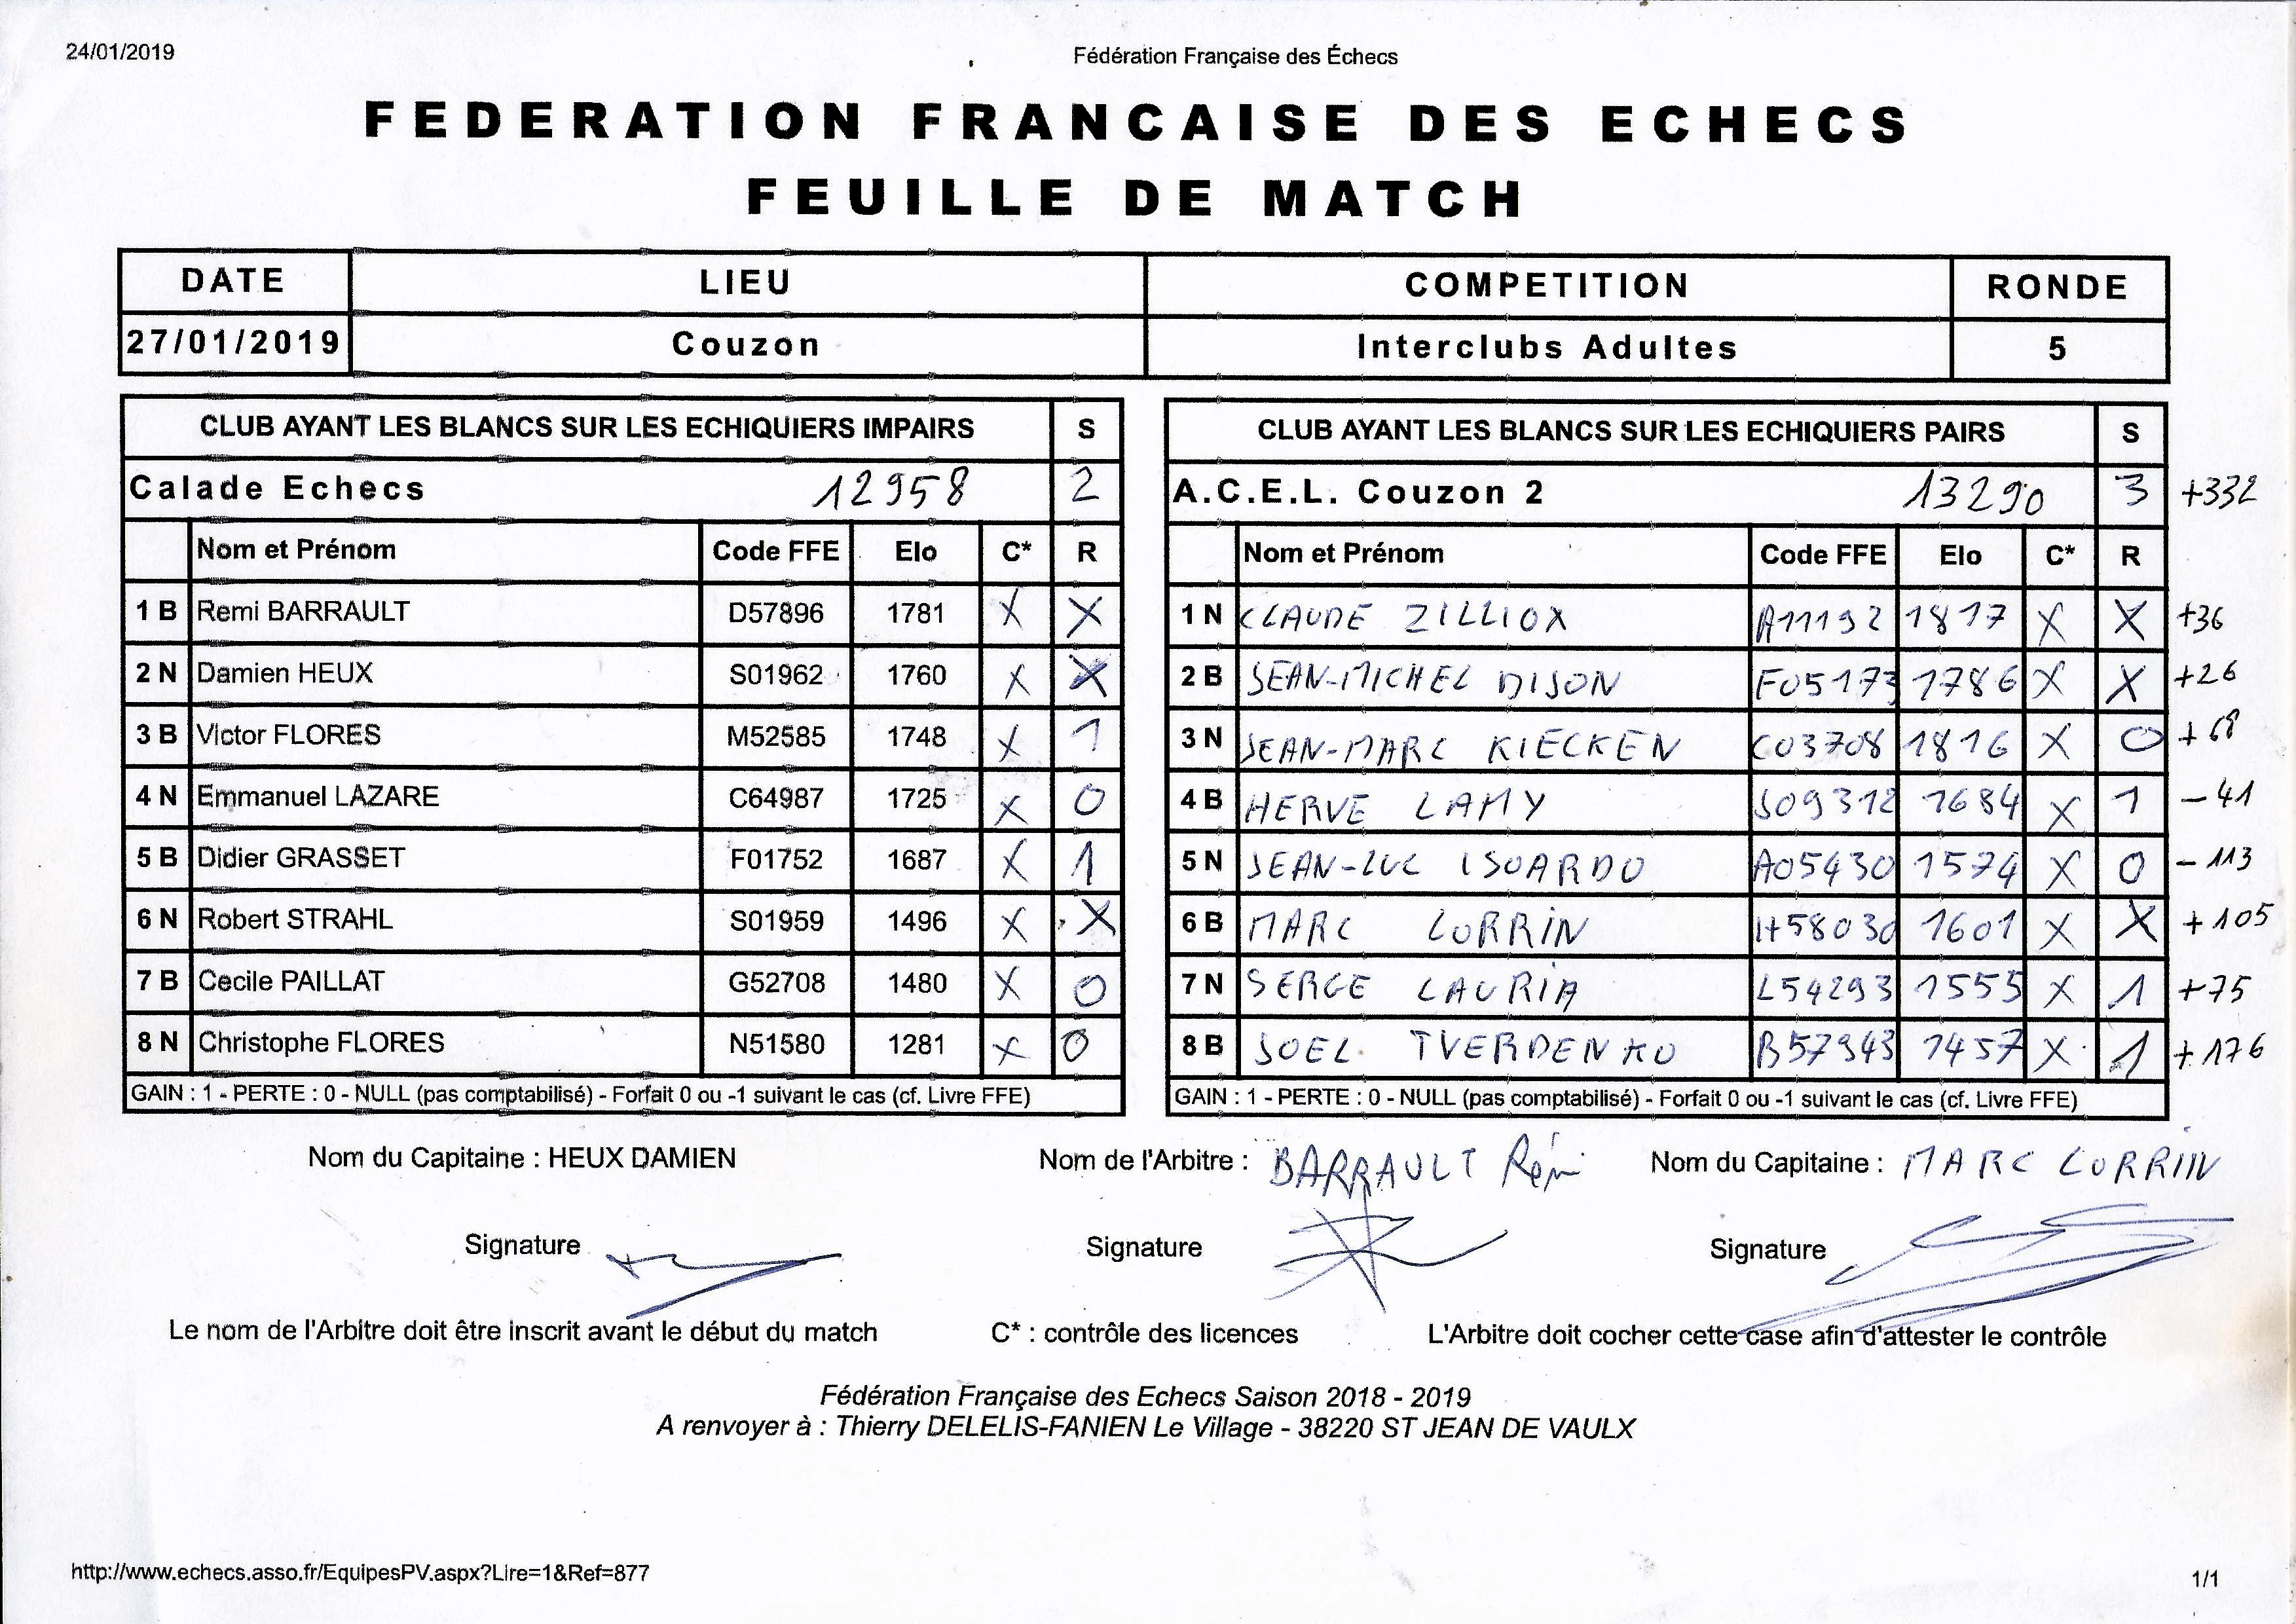 24/01/2019 Fédération Française des Échecs
FEDERATION FRANCAISE DES ECHECS
FEUILLE DE MATCH
DATE LIEU COMPETITION RONDE
27/01/2019 Couzon Interclubs Adultes 5
CLUB AYANT LES BLANCS SUR LES ECHIQUIERS IMPAIRS S CLUB AYANT LES BLANCS SUR LES ECHIQUIERS PAIRS S
Calade Echecs 12958 2 A.C.E.L. Couzon 2 13290 3 +332
Nom et Prénom Code FFE Elo C* R Nom et Prénom Code FFE Elo C* R
1 B Remi BARRAULT D57896 1781 X X 1 N CLAUDE ZILLIOX A11192 1817 X X +36
2 N Damien HEUX S01962 1760 X X 2 B JEAN-MICHEL DIJON F05173 1786 X X +26
3 B Victor FLORES M52585 1748 X 1 3 N JEAN-MARC KIECKEN C03708 1816 X 0 +68
4 N Emmanuel LAZARE C64987 1725 X 0 4 B HERVE LAMY J09312 1684 X 1 -41
5 B Didier GRASSET F01752 1687 X 1 5 N JEAN-LUC ISOARDO A05430 1574 X 0 -113
6 N Robert STRAHL S01959 1496 X X 6 B MARC LORRIN H58030 1601 X X +105
7 B Cecile PAILLAT G52708 1480 X 0 7 N SERGE LAURIA L54293 1555 X 1 +75
8 N Christophe FLORES N51580 1281 X 0 8 B JOEL TVERDENKO B57943 1457 X 1 +176
GAIN : 1 - PERTE : 0 - NULL (pas comptabilisé) - Forfait 0 ou -1 suivant le cas (cf. Livre FFE) GAIN : 1 - PERTE : 0 - NULL (pas comptabilisé) - Forfait 0 ou -1 suivant le cas (cf. Livre FFE)
Nom du Capitaine : HEUX DAMIEN Nom de l'Arbitre : BARRAULT Rémi Nom du Capitaine : MARC LORRIN
Signature Signature Signature
Le nom de l'Arbitre doit être inscrit avant le début du match C* : contrôle des licences L'Arbitre doit cocher cette case afin d'attester le contrôle
Fédération Française des Echecs Saison 2018 - 2019
A renvoyer à : Thierry DELELIS-FANIEN Le Village - 38220 ST JEAN DE VAULX
http://www.echecs.asso.fr/EquipesPV.aspx?Lire=1&Ref=877 1/1